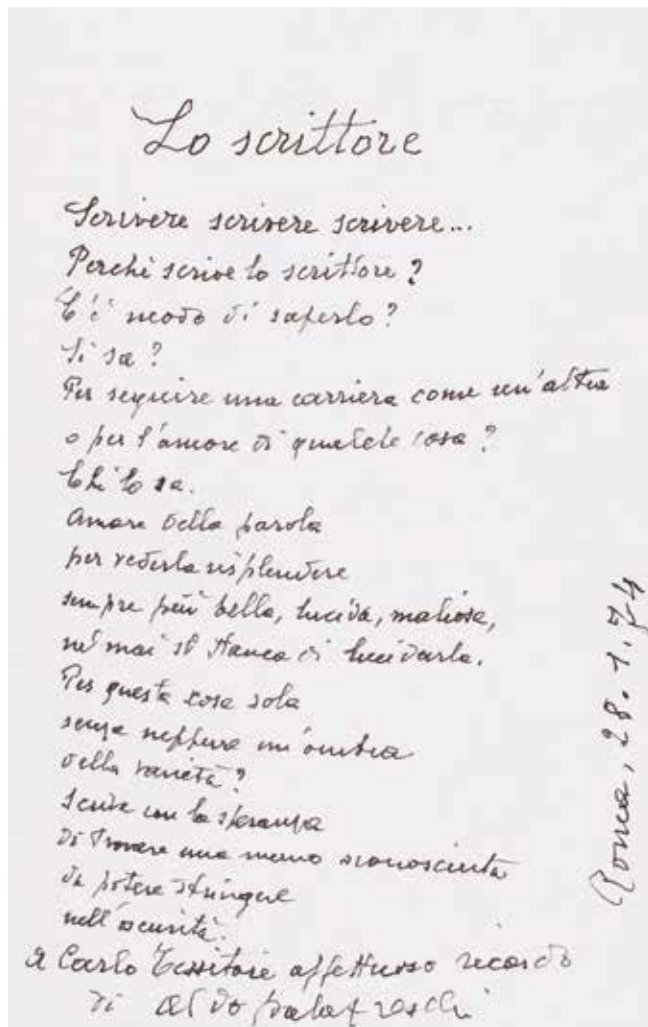 Lo scrittore
Scrivere scrivere scrivere...
Perchè scrive lo scrittore?
C'è modo di saperlo?
Si sa?
Per seguire una carriera come un'altra
o per l'amore di qualche cosa?
Chi lo sa.
Amore della parola
per vederla risplendere
sempre più bella, lucida, maliosa,
nè mai si stanca di lucidarla.
Per questa cosa sola
senza neppure un'ombra
della vanità?
Scrive con la speranza
di trovare una mano sconosciuta
da potere stringere
nell'oscurità.
A Carlo Tessitore affettuoso ricordo
di Aldo Palazzeschi
Roma, 28.1.74